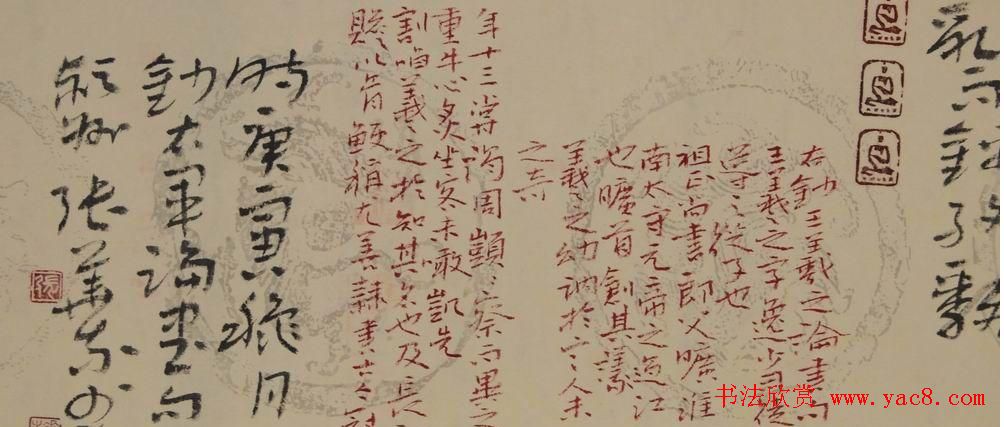 右鈔王羲之論書句
王羲之字逸少司徒
導之從子也
祖正尚書郎父曠淮
南太守元帝之過江
也曠首創其議
羲之幼訥於言人未
之奇
年十三嘗謁周顗察而異之
重牛心炙坐客未噉凱先
割啗羲之於知其名也及長
以骨鯁稱尤善隸書
時庚寅穐月
鈔右軍論書句
張華
书法欣赏 www.yac8.com